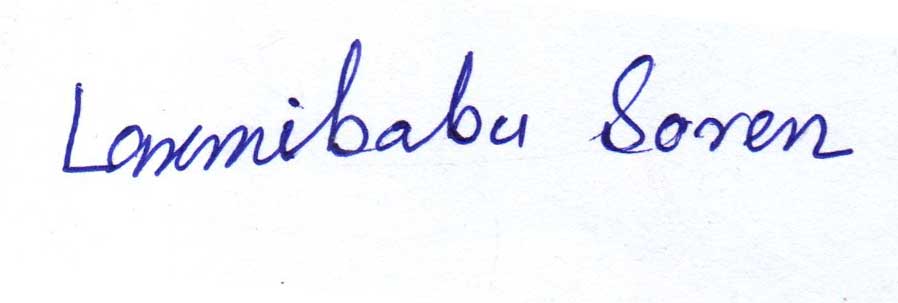 Laxmibabu Soren